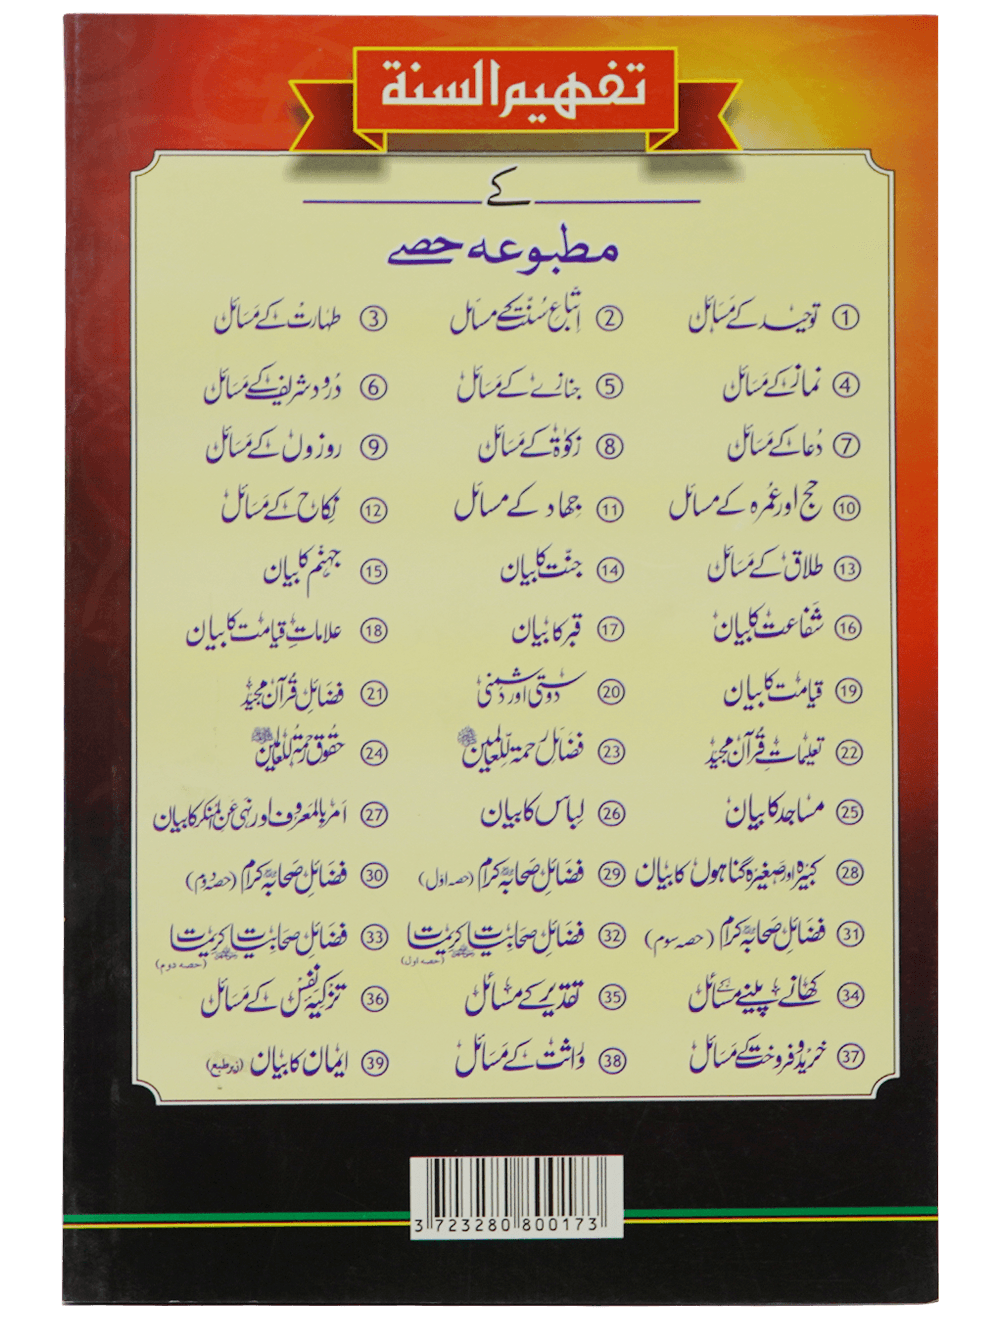 تفهيم السنة
کے
مطبوعہ حصے
① توحید کے مَسَائل ② اتباعِ سُنّت کے مسائل ③ طہارت کے مَسَائل
④ نماز کے مَسَائل ⑤ جنازے کے مَسَائل ⑥ دُرود شریف کے مَسَائل
⑦ دُعا کے مَسَائل ⑧ زکوٰۃ کے مَسَائل ⑨ روزوں کے مَسَائل
⑩ حج اور عُمرہ کے مسائل ⑪ جہاد کے مسائل ⑫ نِکاح کے مَسَائل
⑬ طلاق کے مَسَائل ⑭ جنّت کا بیان ⑮ جہنم کا بیان
⑯ شَفاعت کا بیان ⑰ قبر کا بیان ⑱ علاماتِ قیامت کا بیان
⑲ قیامت کا بیان ⑳ دوستی اور دُشمنی ㉑ فضائلِ قُرآن مجید
㉒ تعلیماتِ قُرآن مجید ㉓ فضائل رحمۃ لِّلعالمین ﷺ ㉔ حقوق رحمۃ للعالمین ﷺ
㉕ مساجد کا بیان ㉖ لِباس کا بیان ㉗ اَمر بالمَعرُوف اور نہی عَنِ المُنکر کا بیان
㉘ کبیرہ اور صَغیرہ گناہوں کا بیان ㉙ فضائلِ صَحابہ کرام (حصہ اول) ㉚ فضائلِ صَحابہ کرام (حصہ دوم)
㉛ فضائلِ صَحابہ کرام (حصہ سوم) ㉜ فضائلِ صَحابیات کریمات (حصہ اول) ㉝ فضائلِ صَحابیات کریمات (حصہ دوم)
㉞ کھانے پینے کے مسائل ㉟ تقدیر کے مسائل ㊱ تزکیۂ نفس کے مَسَائل
㊲ خرید و فروخت کے مَسَائل ㊳ وراثت کے مَسَائل ㊴ ایمان کا بیان (زیر طبع)
3 723280 800173